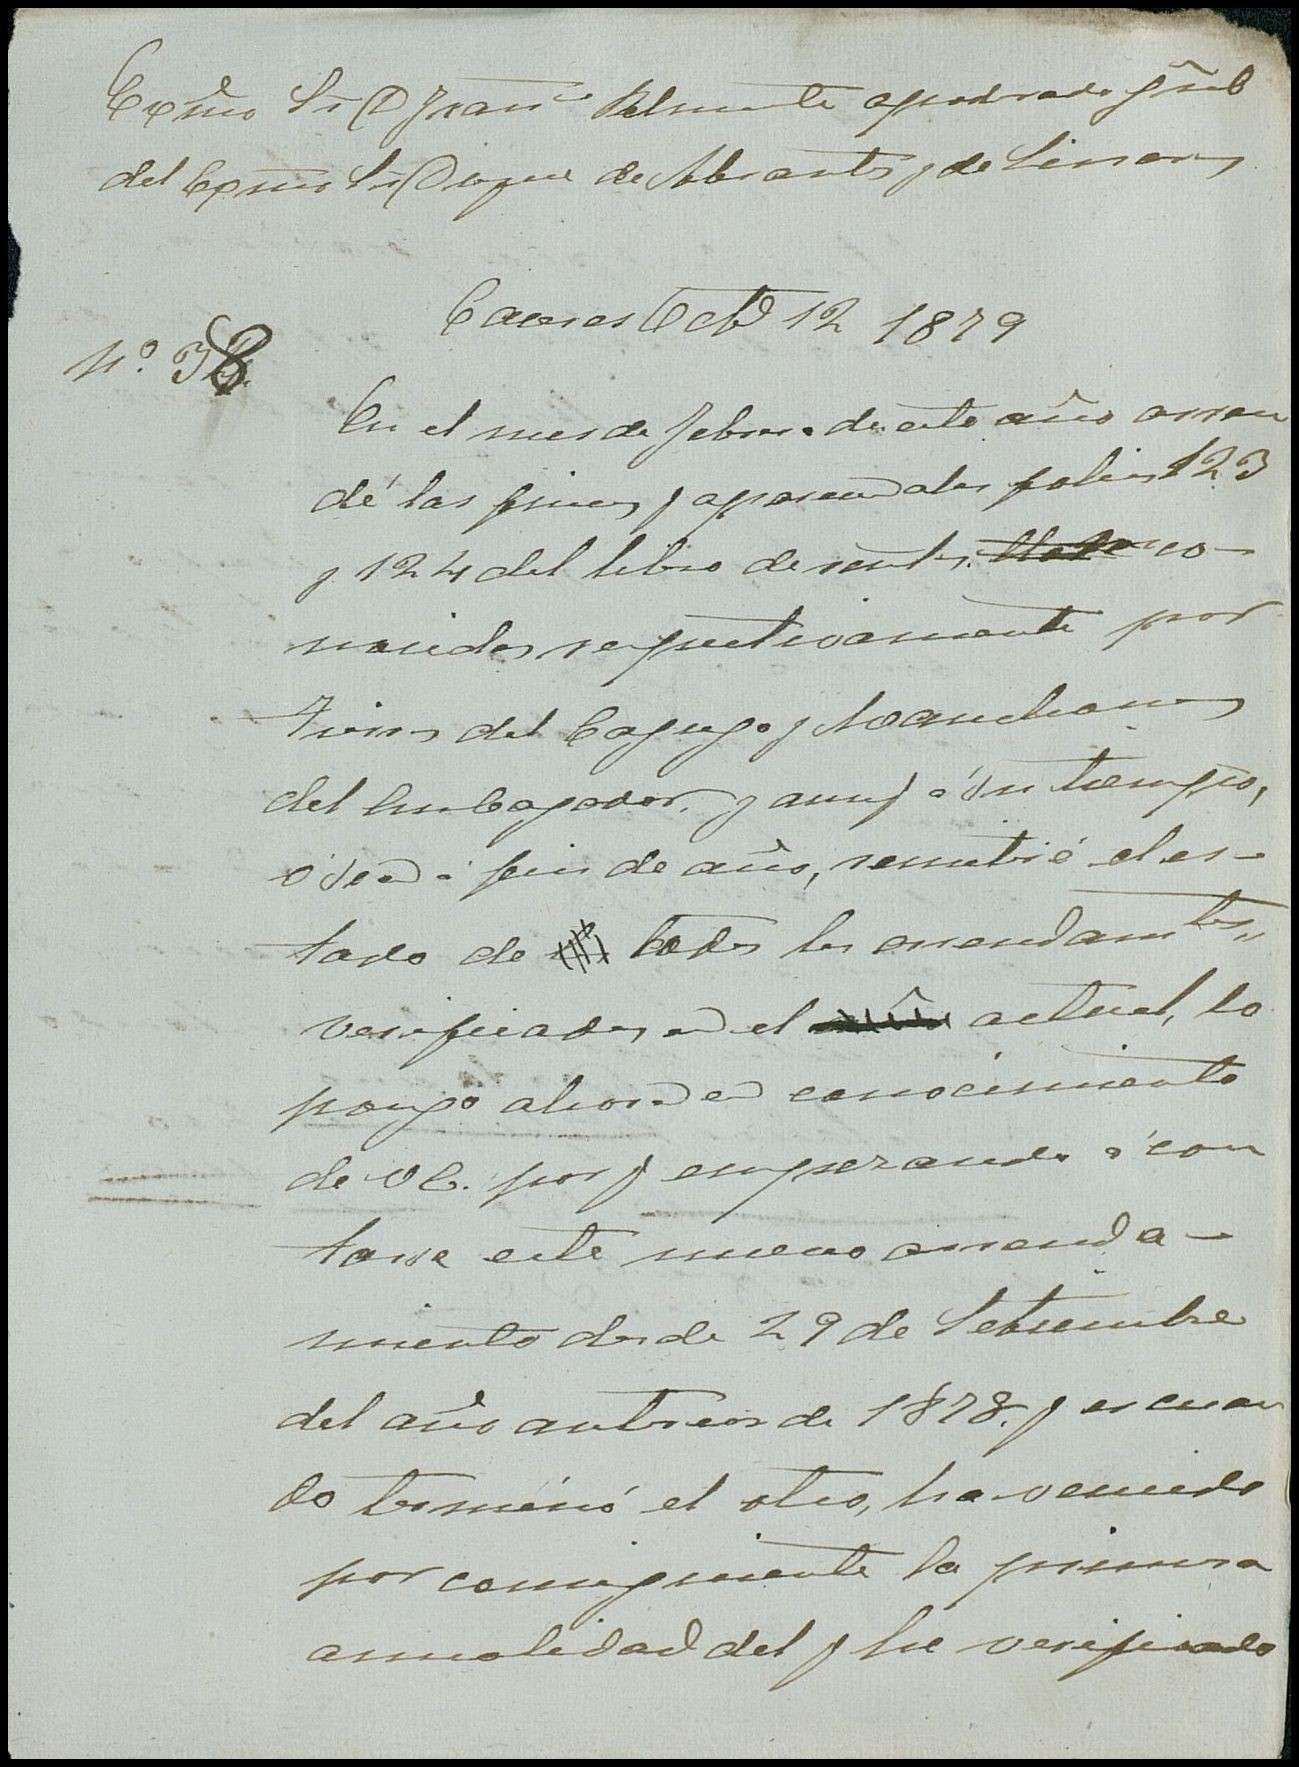 Exmo Sr D Fran.co Belmonte apoderado gral
del Exmo Sr Duque de Abrantes y de Linares
Caceres Octe 12 1879
Nº. 38
En el mes de febrero de este año arren
dé las fincas q aparecen a los folios 123
y 124 del libro de rentas co-
nocidas respectivamente por
Tierras del y
del y aunq á su tiempo,
ó sea á fin de año, remitiré el es-
tado de todos los arrendamtos,,
verificados en el actual, lo
pongo ahora en conocimiento
de VE. por q empezando á con
tarse este nuevo arrenda-
miento desde 29 de Setiembre
del año anterior de 1878. q es cuan
do terminó el otro, ha vencido
por consiguiente la primera
anualidad del q he verificado